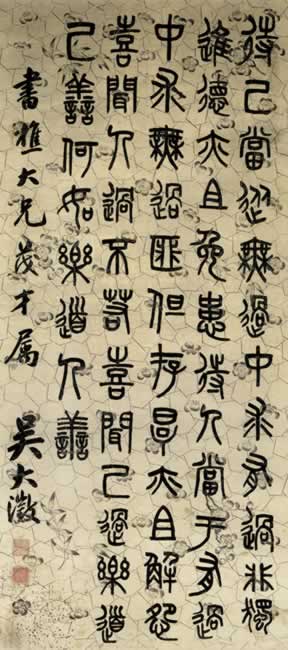 待己當從無過中求有過非獨
進德亦且免患待人當于有過
中求無過匪但存厚亦且解怨
喜聞人過不若喜聞己過樂道
己善何如樂道人善
書樵大兄茂才屬 吳大澂